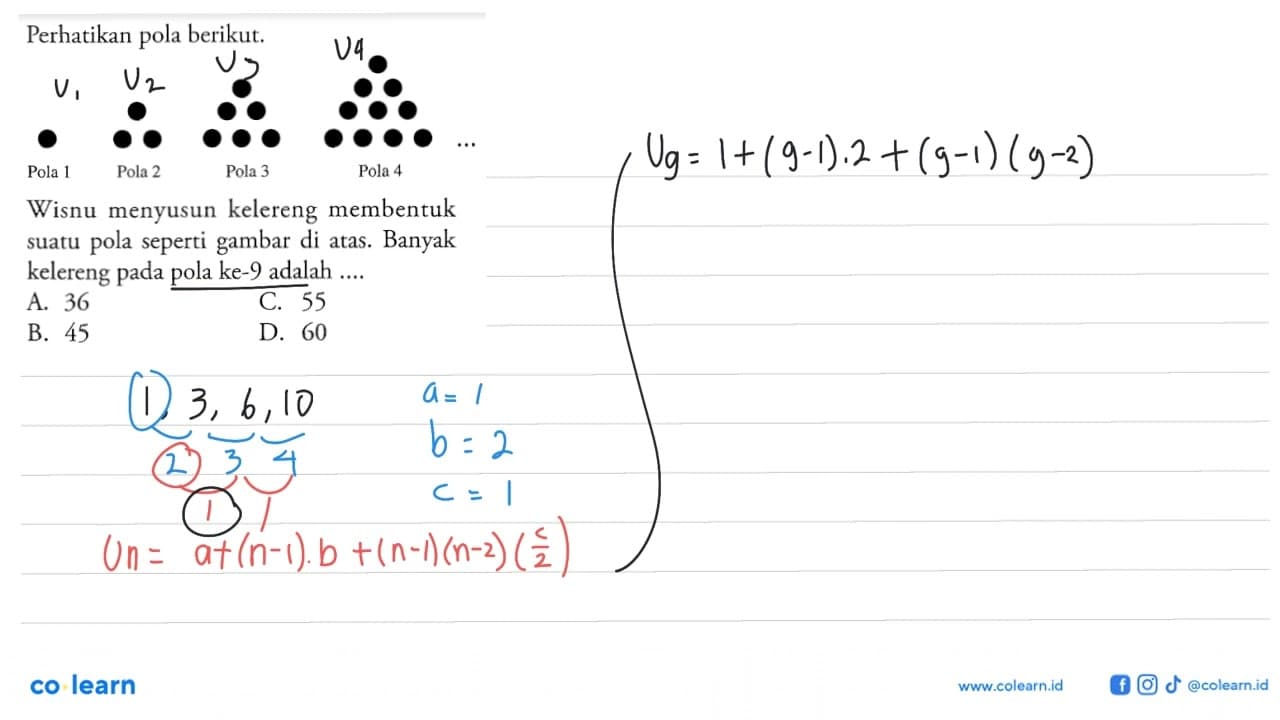 Perhatikan pola berikut.
U1 U2 U3 U4
...
Pola 1 Pola 2 Pola 3 Pola 4
Wisnu menyusun kelereng membentuk
suatu pola seperti gambar di atas. Banyak
kelereng pada pola ke-9 adalah ....
A. 36 C. 55
B. 45 D. 60
1, 3, 6, 10
2 3 4
1 1
a = 1
b = 2
c = 1
Un = a+(n-1).b+(n-1)(n-2)(c/2)
U9 = 1+(9-1).2+(9-1)(9-2)
co learn
www.colearn.id
@colearn.id